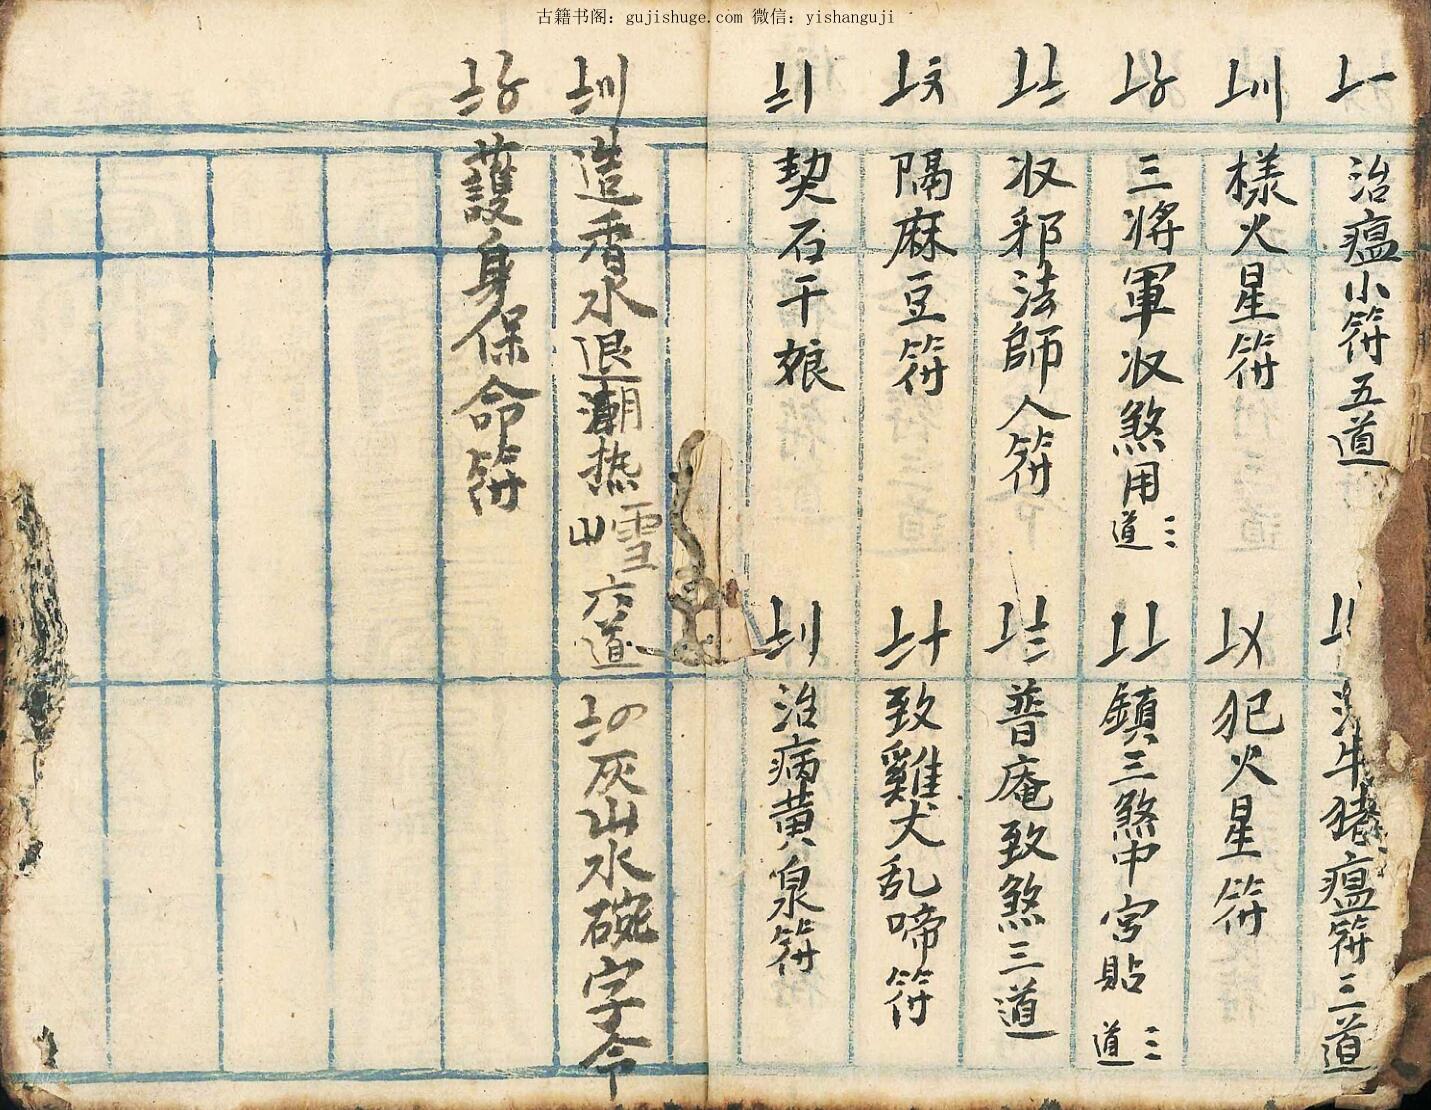 古籍书阁：gujishuge.com 微信：yishanguji
〦一 治瘟小符五道
牛猪瘟符三道
〦〣 樣火星符
〦〤 犯火星符
〦〥 三將軍收煞用三道
〦〦 鎮三煞中宮貼三道
〦〧 收邪法師人符
〦〨 普庵致煞三道
〦〩 隔麻豆符
〧十 致雞犬乱啼符
〧〡 契石干娘
〧〢 治病黄泉符
〧〣 造香水退潮热雪山六道
〧〤 灰山水碗字令
〧〥 護身保命符